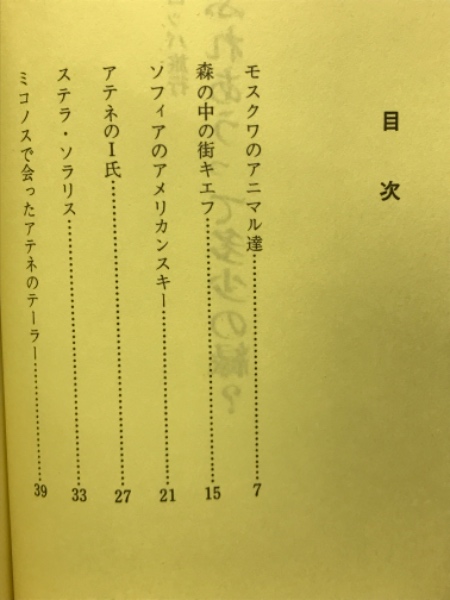 目次
モスクワのアニマル達……………………7
森の中の街キエフ……………………15
ソフィアのアメリカンスキー……………………21
アテネのI氏……………………27
ステラ・ソラリス……………………33
ミコノスで会ったアテネのテーラー……………………39